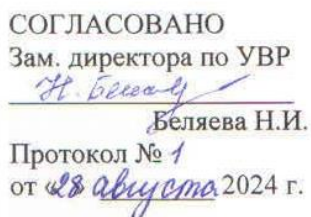 СОГЛАСОВАНО
Зам. директора по УВР
Беляева Н.И.
Протокол № 1
от «28 августа 2024 г.